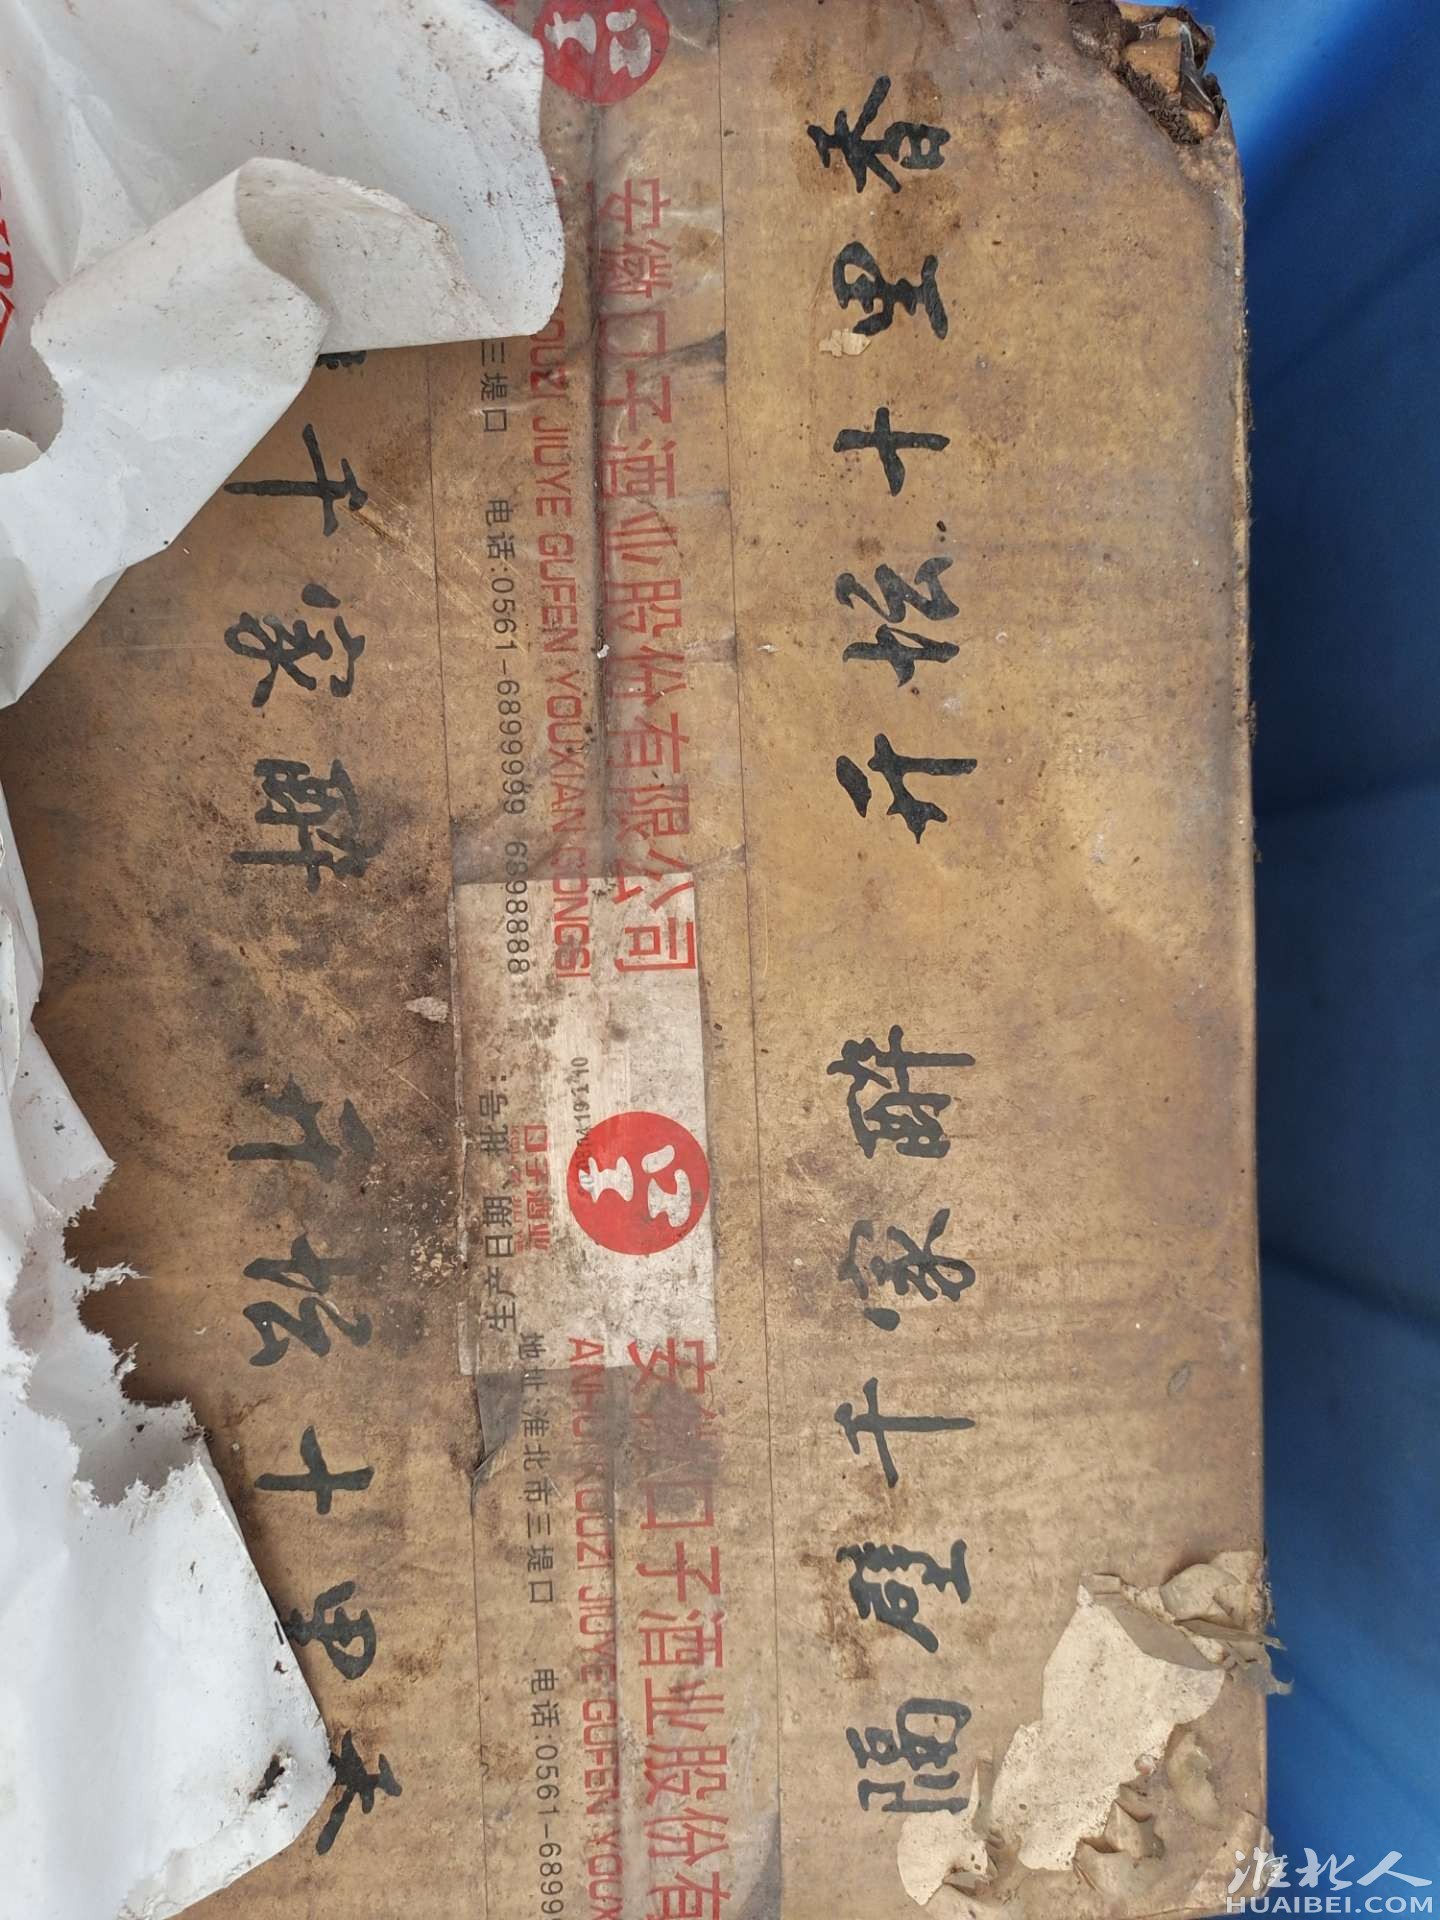 隔壁千家醉 开坛十里香
安徽口子酒业股份有限公司
OUZI JIUYE GUFEN YOUXIAN GONGSI
三堤口 电话:0561-6899999 6898888
口子酒业
生产日期、批号:
安徽口子酒业股份有
ANHUI KOUZI JIUYE GUFEN YOUX
地址:淮北市三堤口 电话:0561-6899
千家醉 开坛十里香
淮北人
HUAIBEI.COM